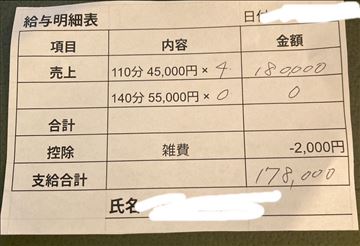 給与明細表 日付
項目 内容 金額
売上 110分 45,000円 × 4 180,000
140分 55,000円 × 0 0
合計
控除 雑費 -2,000円
支給合計 178,000
氏名